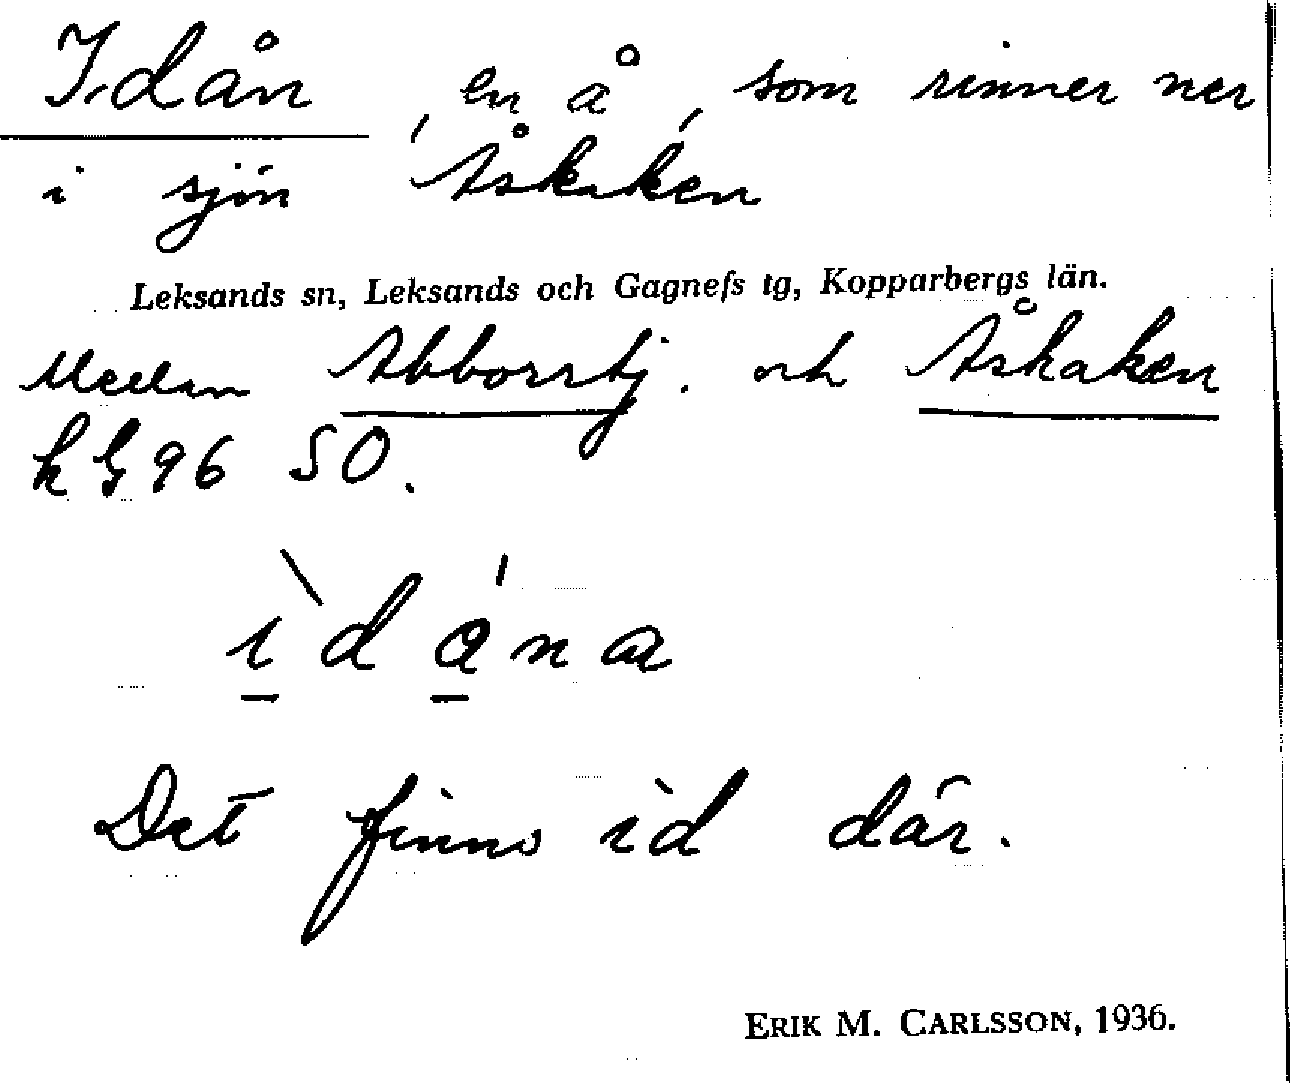 Idån, en å, som rinner ner
i sjön Åskaken
Leksands sn, Leksands och Gagnefs tg, Kopparbergs län.
Medan Abborrtj. och Åskaken
96 SO.
ìdánа
Det finns id där.
ERIK M. CARLSSON, 1936.